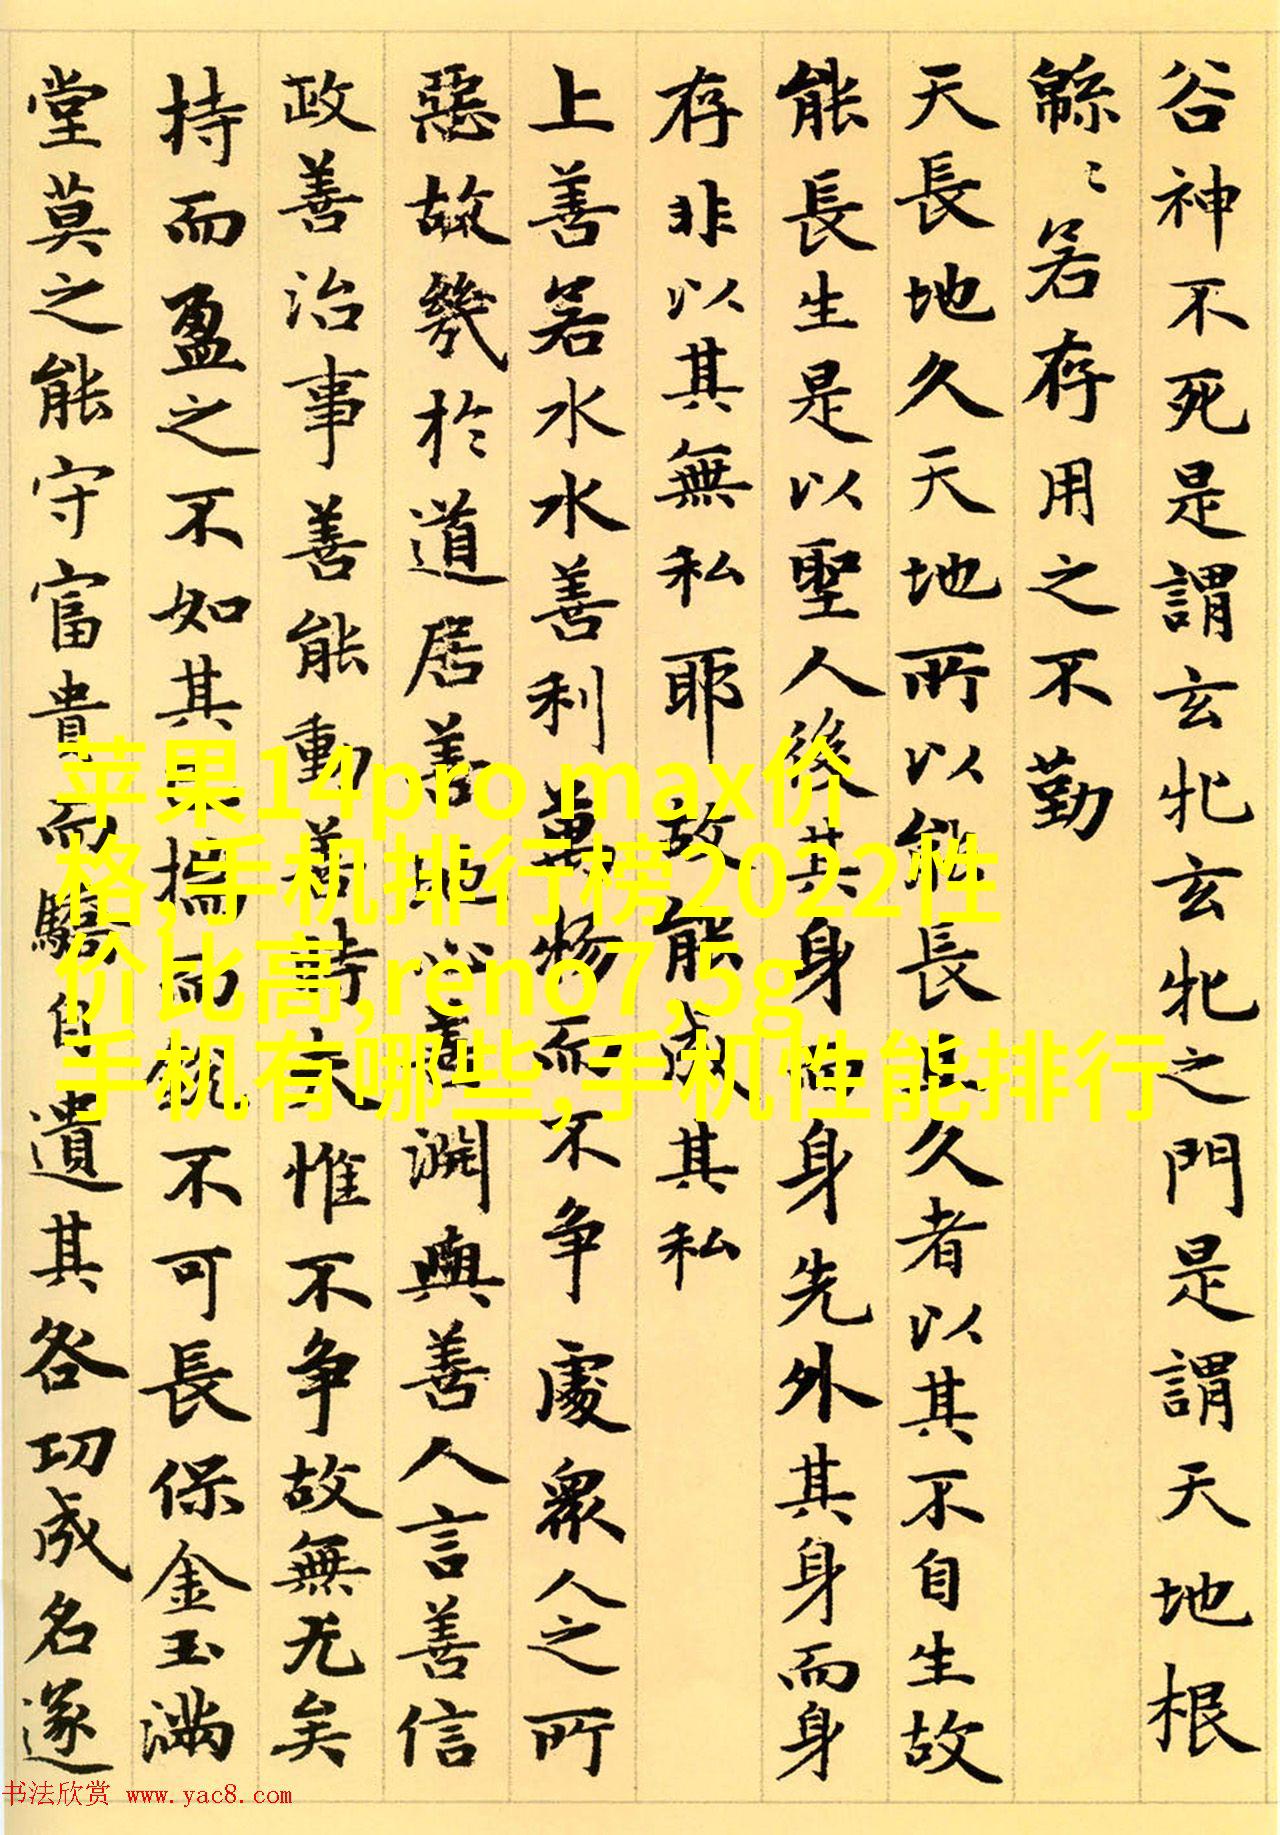 谷神不死是謂玄牝玄牝之門是謂天地根
緜〻若存用之不勤
天長地久天地所以能長且久者以其不自生故
能長生是以聖人後其身而身先外其身而身
存非以其無私耶故能成其私
上善若水水善利萬物而不争處衆人之所
惡故幾於道居善地心善淵與善人言善信
政善治事善能動善時夫惟不争故無尤矣
持而盈之不如其已揣而銳不可長保金玉滿
堂莫之能守富貴而驕自遺其咎功成名遂
苹果14pro max价
格,手机排行榜2022性
价比高,reno7,5g
手机有哪些,手机性能排行
书法欣赏 www.yac8.com